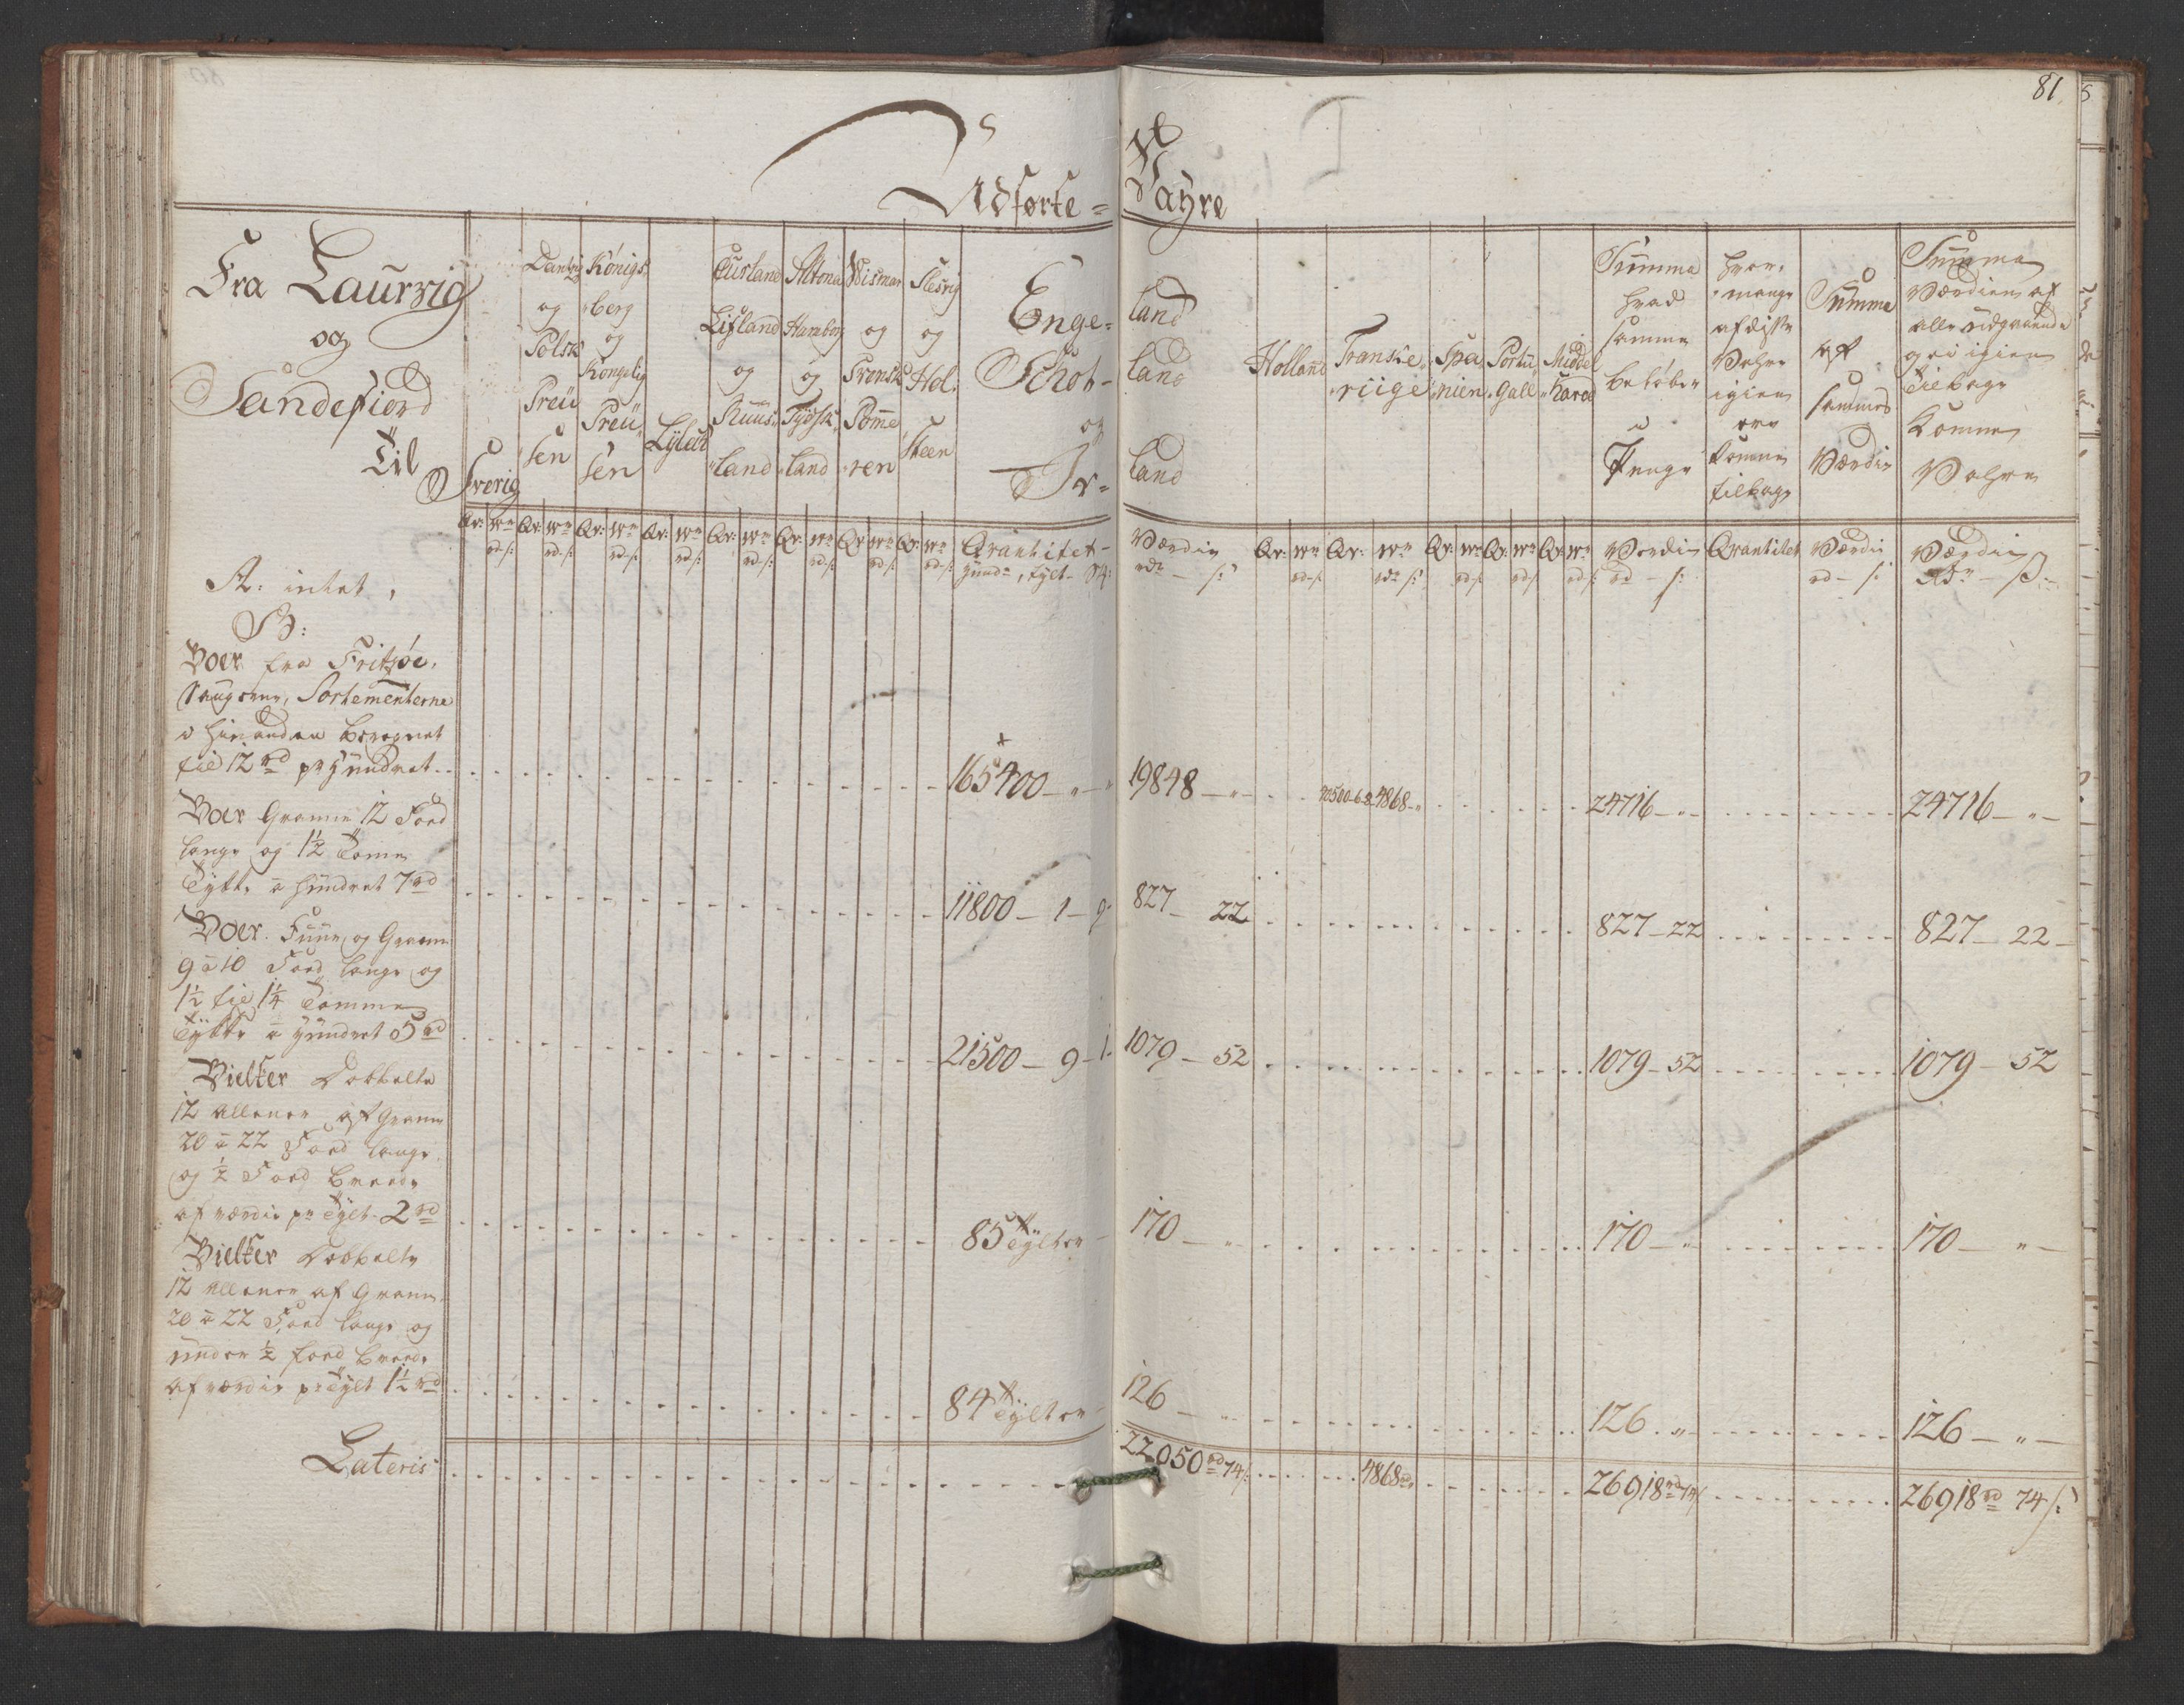 81
Udførte = Wahre
Fra Laurvig
og
Sandefiord
Til
Sverig
Dantzig
og
Polsk
Preu
sen
Königs
berg
og
Kongelig
Preu
sen
Lybeck
Curland
Lifland
og
Ruus
land
Altona
Hamborg
og
Tydsk
land
Wismar
og
Svensk
Pomme
ren
Slesvig
og
Hol
steen
Enge= land
Schot- land
og
Ir= land
Holland
Franske
riige
Spa
nien
Portu
gall
Middel
Havet
Summa
hvad
samme
beløber
i
Penge
hvor
mange
af disse
Vahre
igien
ere
komne
tilbage
Summa
af
sammes
Værdie
Summa
Værdien af
alle udgaaende
og ei igien
tilbage
komne
Vahre
Qv: Wn Qv: Wn Qv: Wn Qv: Wn Qv: Wn Qv: Wn Qv: Wn Qv: Wn Qvantitet Værdie Qv: Wn Qv: Wn Qv: Wn Qv: Wn Qv: Wn Værdie Qvantitet Værdie Værdie
rd - s: rd - s: rd - s: rd - s: rd - s: rd - s: rd - s: hund:, tylt - St: rdr - s: rd - s: rdr s: rd - s: rd - s: rd - s: rd - s: rd - s: Rdr - s:
A: intet,
B:
Boer fra Fritzøe,
Saugerne, Sortementerne
i hinanden beregnet
til 12 rd pr hundret - 165400 - " - " 19848 - " 40500-6-8 4868 - " 24716 - " - 24716 - " -
Boer Granne 12 Foed
lange og 1½ Tomme
Tykke a hundret 7 rd 11800 - 1 - 9 827 - 22 827 - 22 827 - 22 -
Boer. Furu og Granne
9 a 10 Foed lange og
1½ til 1¼ Tomme
Tykke a hundret 5 rd 21500 - 9 - 1. 1079 - 52 1079 - 52 1079 - 52
Bielker Dobbelte
12 Allener af Granne
20 a 22 Foed lange
og ½ Foed brede
af værdie pr Tylt - 2 rd 85 Tylter - 170 - " 170 - " 170 - " -
Bielker Dobbelte
12 Allener af Granne
20 a 22 Foed lange og
under ½ foed brede
af værdie pr Tylt 1½ rd 84 Tylter - 126 - " 126 - " 126 - " -
Lateris 22050 rd 74 s: 4868 rd " 26918 rd 74 s 26918 rd 74 s: